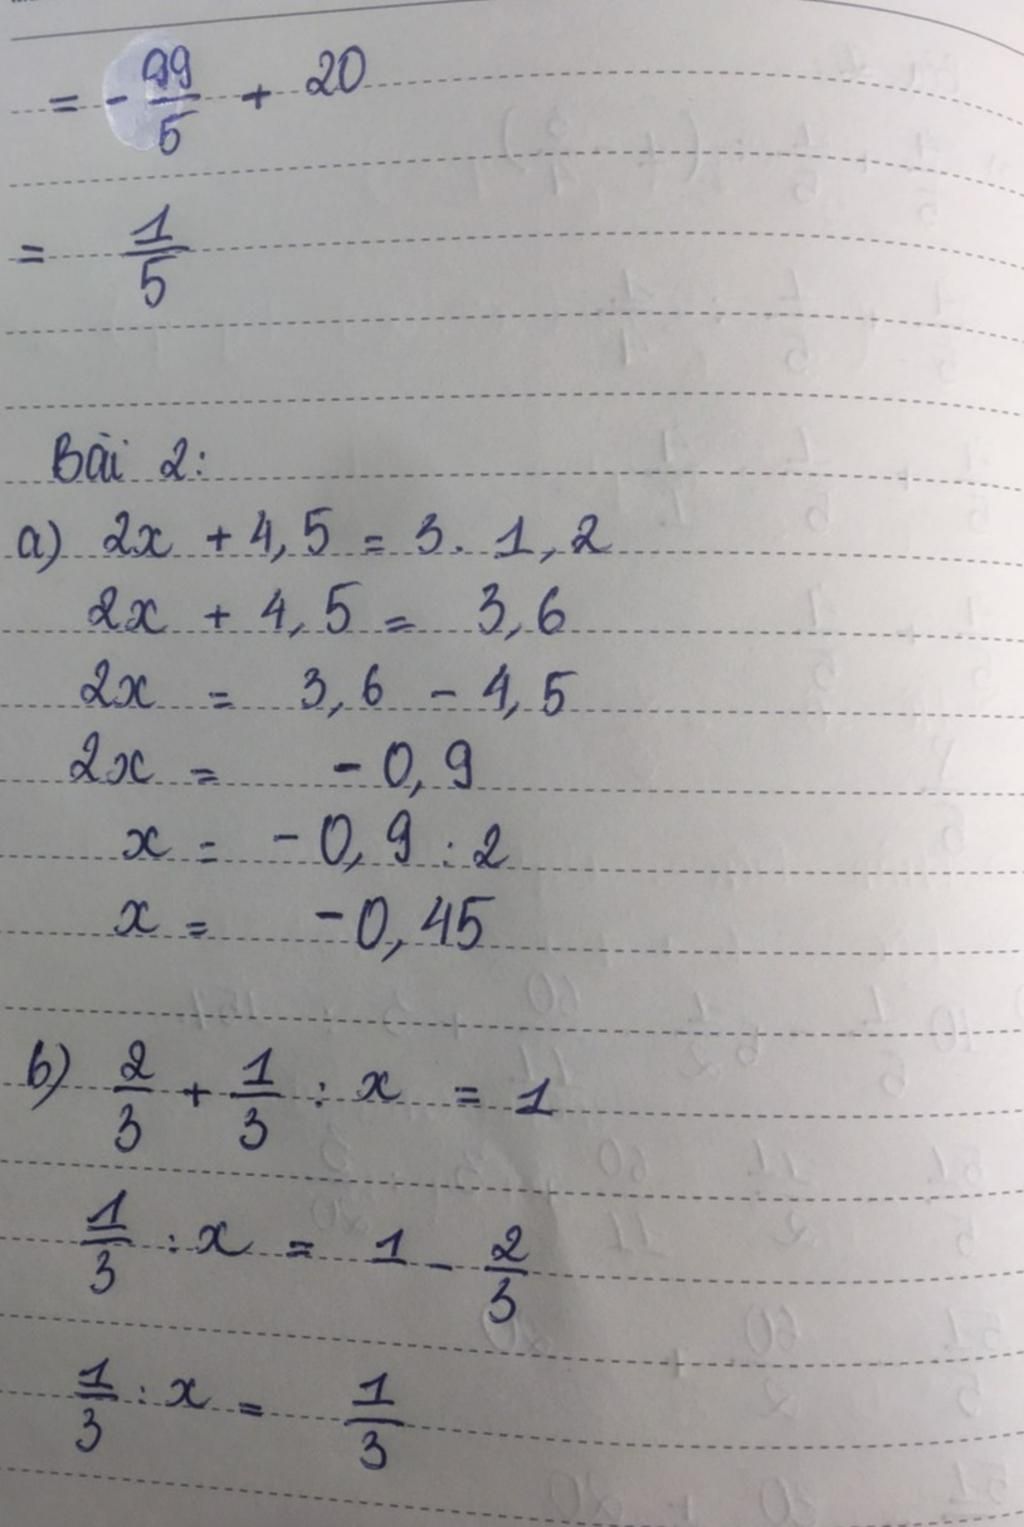 = - 99/5 + 20
= 1/5
Bài 2:
a) 2x + 4,5 = 3. 1,2
2x + 4,5 = 3,6
2x = 3,6 - 4,5
2x = - 0,9
x = - 0,9 : 2
x = - 0,45
b) 2/3 + 1/3 : x = 1
1/3 : x = 1 - 2/3
1/3 : x = 1/3